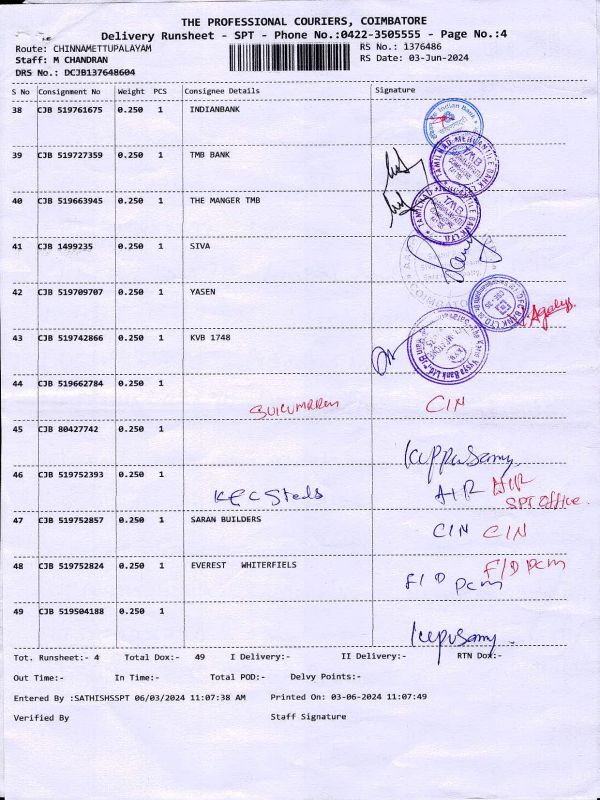 THE PROFESSIONAL COURIERS, COIMBATORE
Delivery Runsheet - SPT - Phone No.:0422-3505555 - Page No.:4
Route: CHINNAMETTUPALAYAM RS No.: 1376486
Staff: M CHANDRAN RS Date: 03-Jun-2024
DRS No.: DCJB137648604
S No Consignment No Weight PCS Consignee Details Signature
38 CJB 519761675 0.250 1 INDIANBANK
39 CJB 519727359 0.250 1 TMB BANK
40 CJB 519663945 0.250 1 THE MANGER TMB
41 CJB 1499235 0.250 1 SIVA
42 CJB 519709707 0.250 1 YASEN
43 CJB 519742866 0.250 1 KVB 1748
44 CJB 519662784 0.250 1
CIN
45 CJB 80427742 0.250 1
Kuppusamy
46 CJB 519752393 0.250 1
A/R A/R
SPT Office
47 CJB 519752857 0.250 1 SARAN BUILDERS
CIN CIN
48 CJB 519752824 0.250 1 EVEREST WHITERFIELS
F/D pcm F/D pcm
49 CJB 519504188 0.250 1
Tot. Runsheet:- 4 Total Dox:- 49 I Delivery:- II Delivery:- RTN Dox:-
Out Time:- In Time:- Total POD:- Delvy Points:-
Entered By :SATHISHSSPT 06/03/2024 11:07:38 AM Printed On: 03-06-2024 11:07:49
Verified By Staff Signature